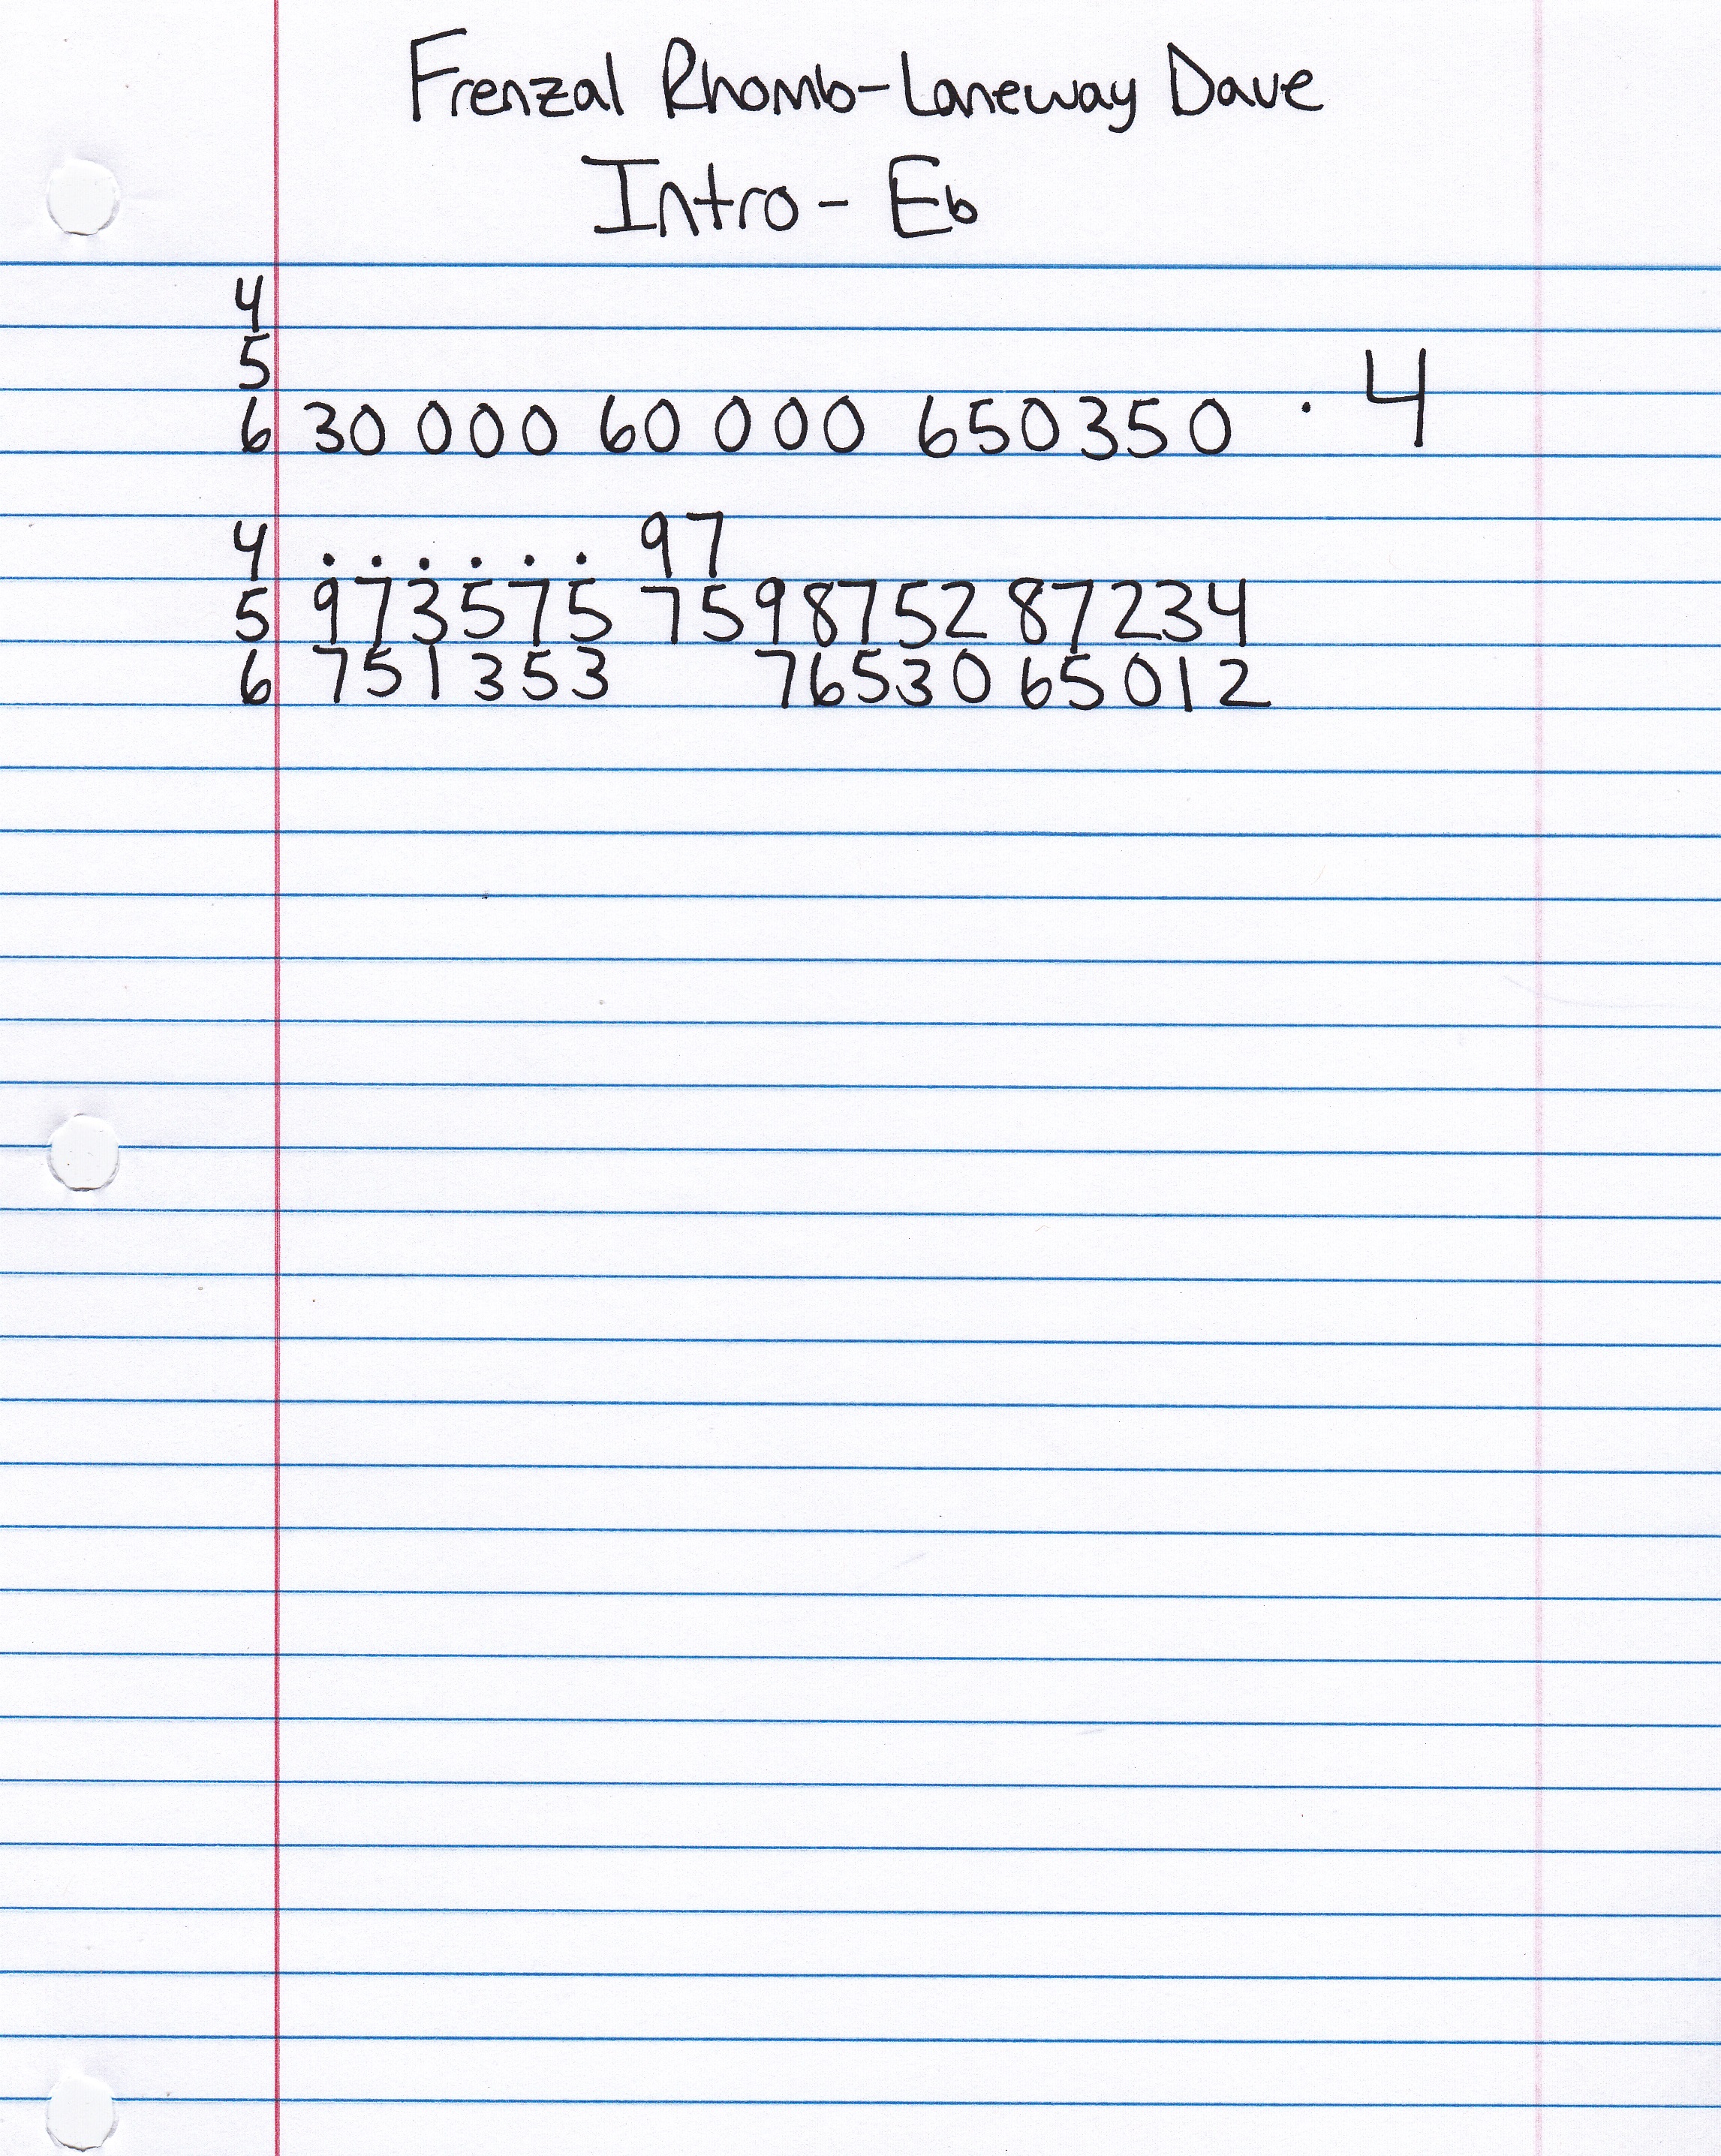 Frenzal Rhomb-Laneway Dave
Intro - Eb
4
5
6 30 000 60 000 650350 · 4
4 . . . . . . 97
5 973575 7598752 87234
6 751353 76530 65012